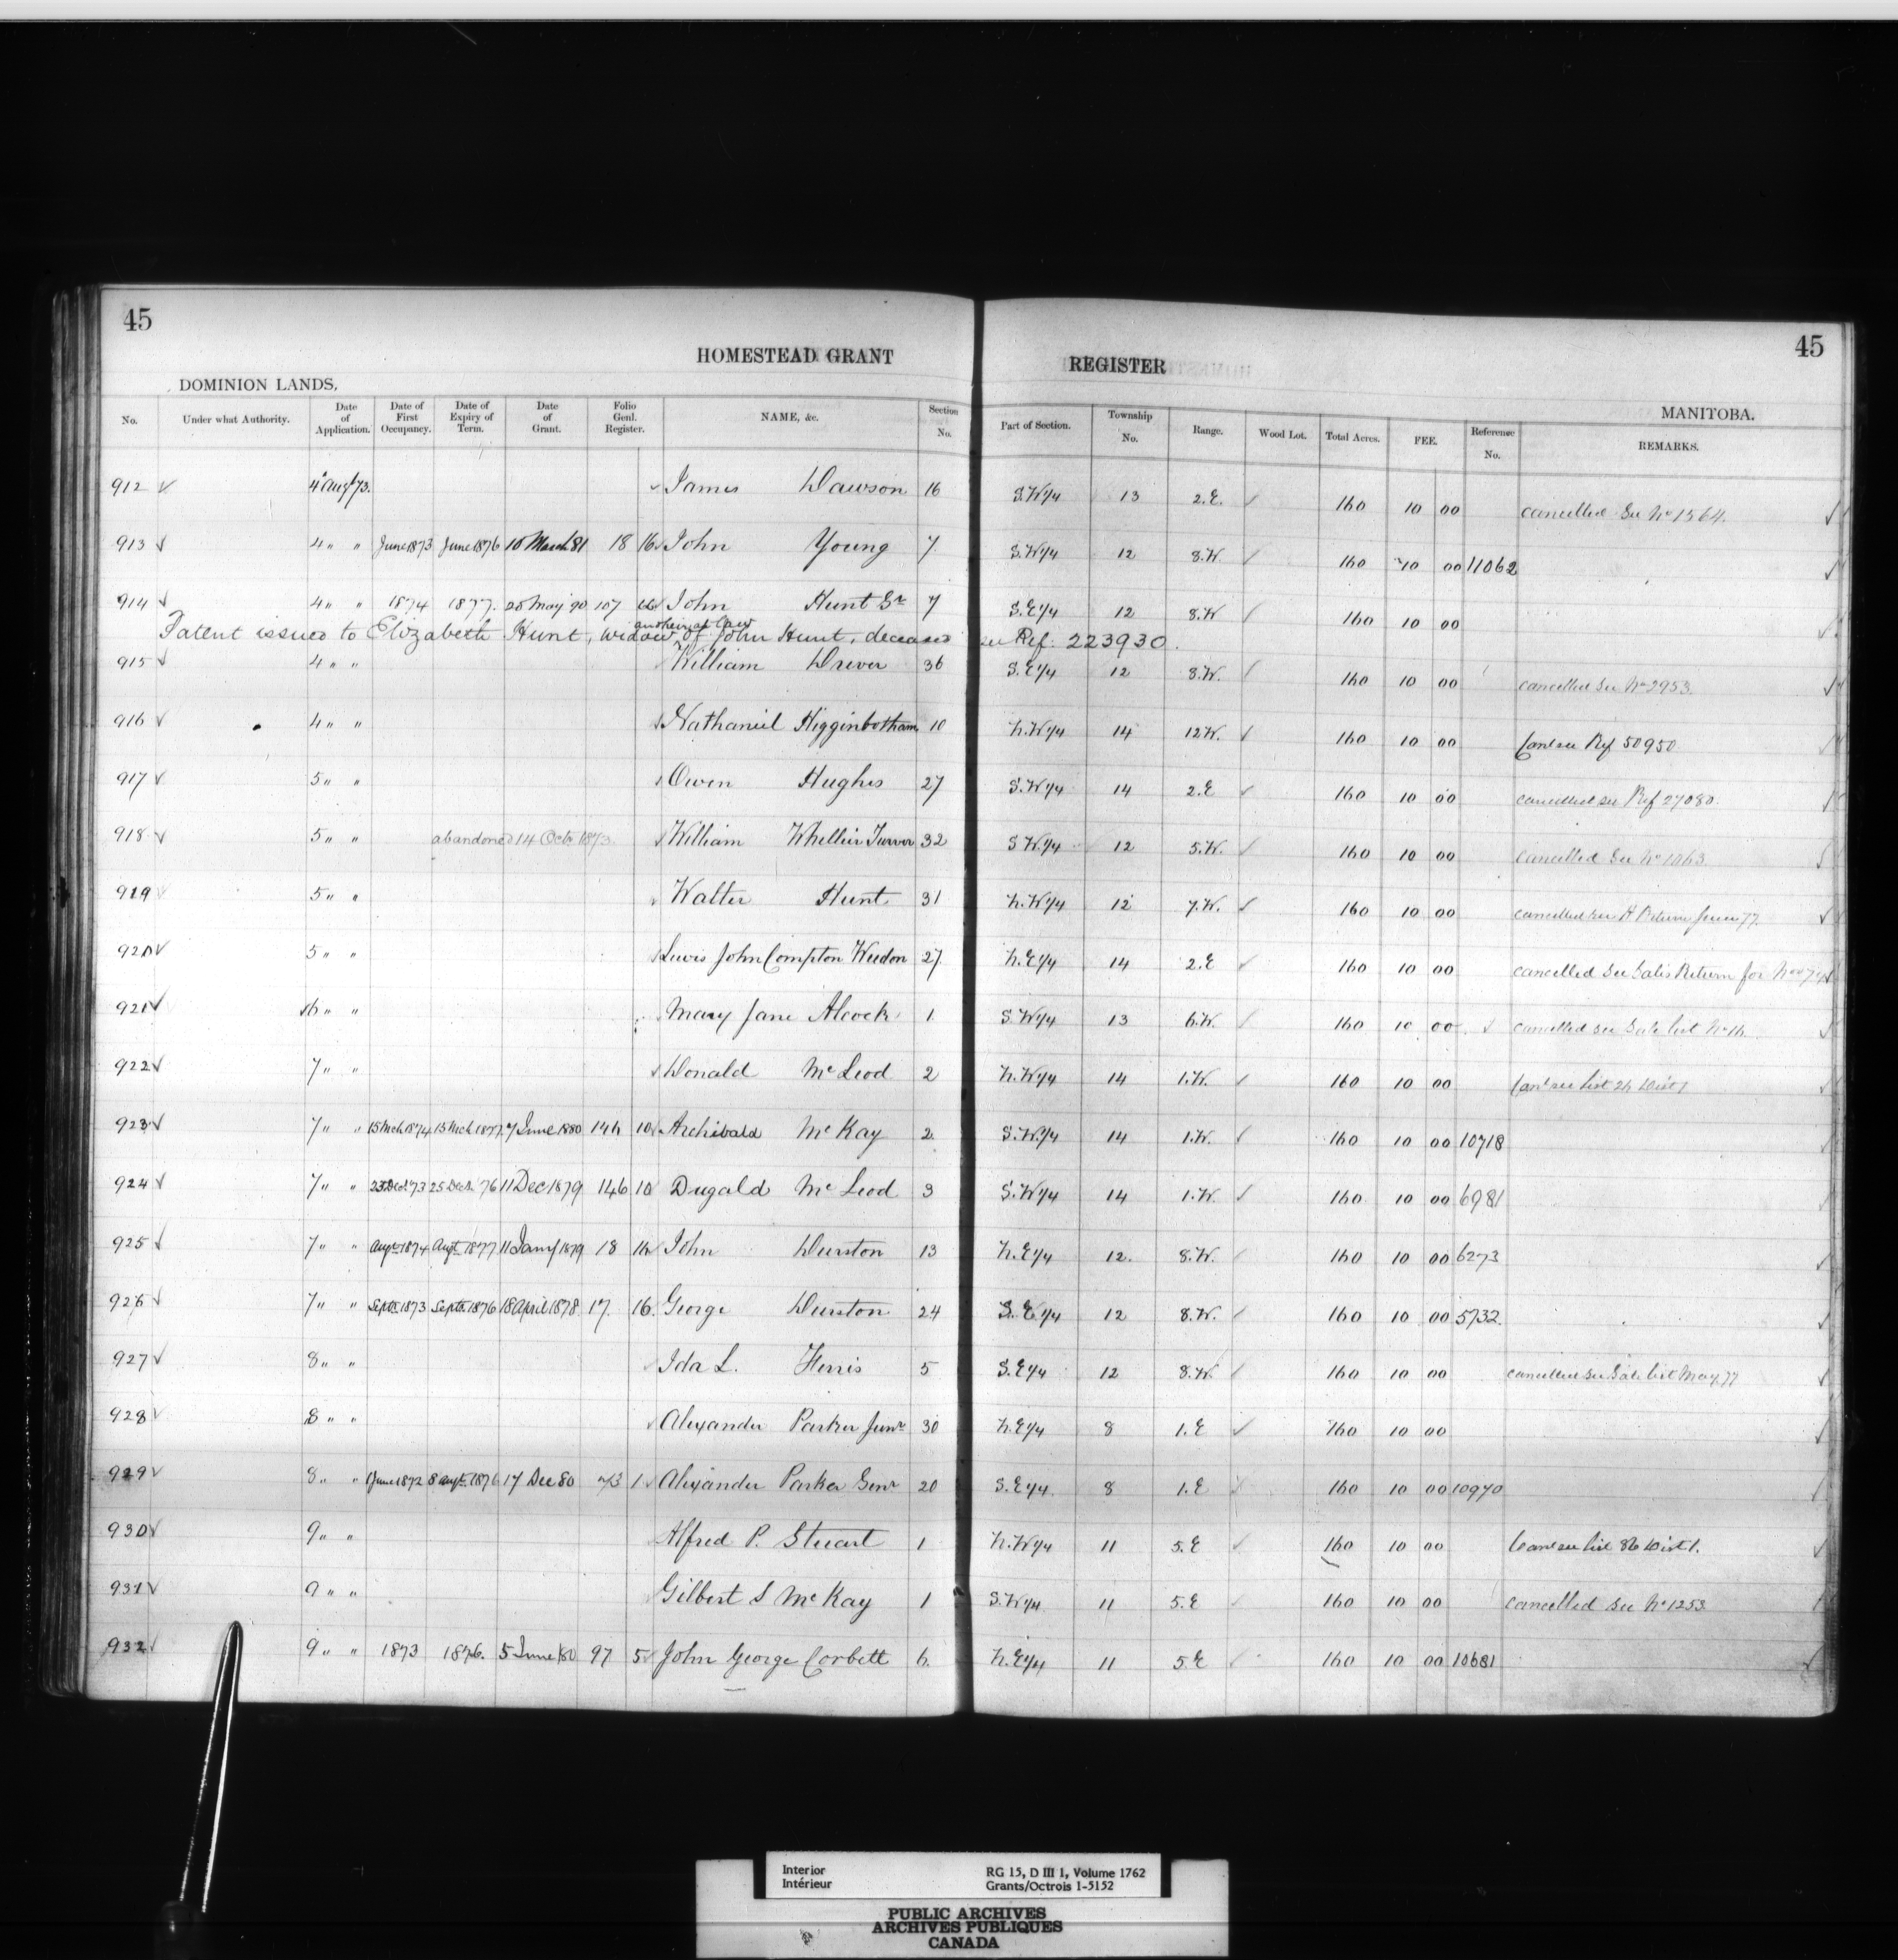 45 45
HOMESTEAD GRANT REGISTER
DOMINION LANDS. MANITOBA.
No. Under what Authority. Date of Application. Date of First Occupancy. Date of Expiry of Term. Date of Grant. Folio Genl. Register. NAME, &c. Section No. Part of Section. Township No. Range. Wood Lot. Total Acres. FEE. Reference No. REMARKS.
912 4 Augt 73. James Dawson 16 S.W 1/4 13 2.E 160 10 00 cancelled See No 1564.
913 4 " " June 1873 June 1876 10 March 81 18 16 John Young 7 S.W 1/4 12 8.W. 160 10 00 11062
914 4 " " 1874 1877. 20 May 90 107 John Hunt Sr 7 S.E 1/4 12 8.W 160 10 00
Patent issued to Elizabeth Hunt, widow and heir at law of John Hunt, deceased see Ref. 223930.
915 4 " " William Drever 36 S.E 1/4 12 8.W. 160 10 00 cancelled See No 2953.
916 4 " " Nathaniel Higginbotham 10 N.W 1/4 14 12 W. 160 10 00 Canl see Ref 50950
917 5 " " Owen Hughes 27 S.W 1/4 14 2.E 160 10 00 cancelled see Ref 27080.
918 5 " " abandoned 14 Octr 1873. William Whellier Turver 32 S W. 1/4 12 5.W. 160 10 00 cancelled See No 1063
919 5 " " Walter Hunt 31 N.W 1/4 12 7.W. 160 10 00 cancelled see H Return June 77.
920 5 " " Lewis John Compton Weedon 27 N.E 1/4 14 2.E 160 10 00 cancelled See Sales Return for
921 6 " " Mary Jane Alcock 1 S.W 1/4 13 6.W. 160 10 00 cancelled see Sale list No 16
922 7 " " Donald McLeod 2 N.W 1/4 14 1.W. 160 10 00 Canl see List 26 Dist 1
923 7 " " 15 Mch 1874 15 Mch 1877 7 June 1880 146 10 Archibald McKay 2 S.W. 1/4 14 1.W. 160 10 00 10718
924 7 " " 23 Decr 73 23 Decr 76 11 Dec 1879 146 10 Dugald McLeod 3 S.W 1/4 14 1.W. 160 10 00 6981
925 7 " " Augt 1874 Augt 1877 11 Jany 1879 18 16 John Durston 13 N.E 1/4 12. 8.W. 160 10 00 6273
926 7 " " Septr 1873 Septr 1876 18 April 1878 17. 16. George Durston 24 S.E 1/4 12 8.W. 160 10 00 5732.
927 8 " " Ida L. Ferris 5 S.E 1/4 12 8.W. 160 10 00 cancelled see Sale list May 77
928 8 " " Alexander Parker Junr 30 N.E 1/4 8 1.E 160 10 00
929 8 " " June 1872 8 Augt 1876 17 Dec 80 73 1 Alexander Parker Senr 20 S.E 1/4 8 1.E 160 10 00 10970
930 9 " " Alfred P. Stuart 1 N.W 1/4 11 5.E 160 10 00 Canl see list 86 Dist 1.
931 9 " " Gilbert S McKay 1 S.W 1/4 11 5.E 160 10 00 cancelled See No 1253
932 9 " " 1873 1876. 5 June 80 97 5 John George Corbett 6. N.E 1/4 11 5.E 160 10 00 10681
Interior RG 15, D III 1, Volume 1762
Intérieur Grants/Octrois 1-5152
PUBLIC ARCHIVES
ARCHIVES PUBLIQUES
CANADA